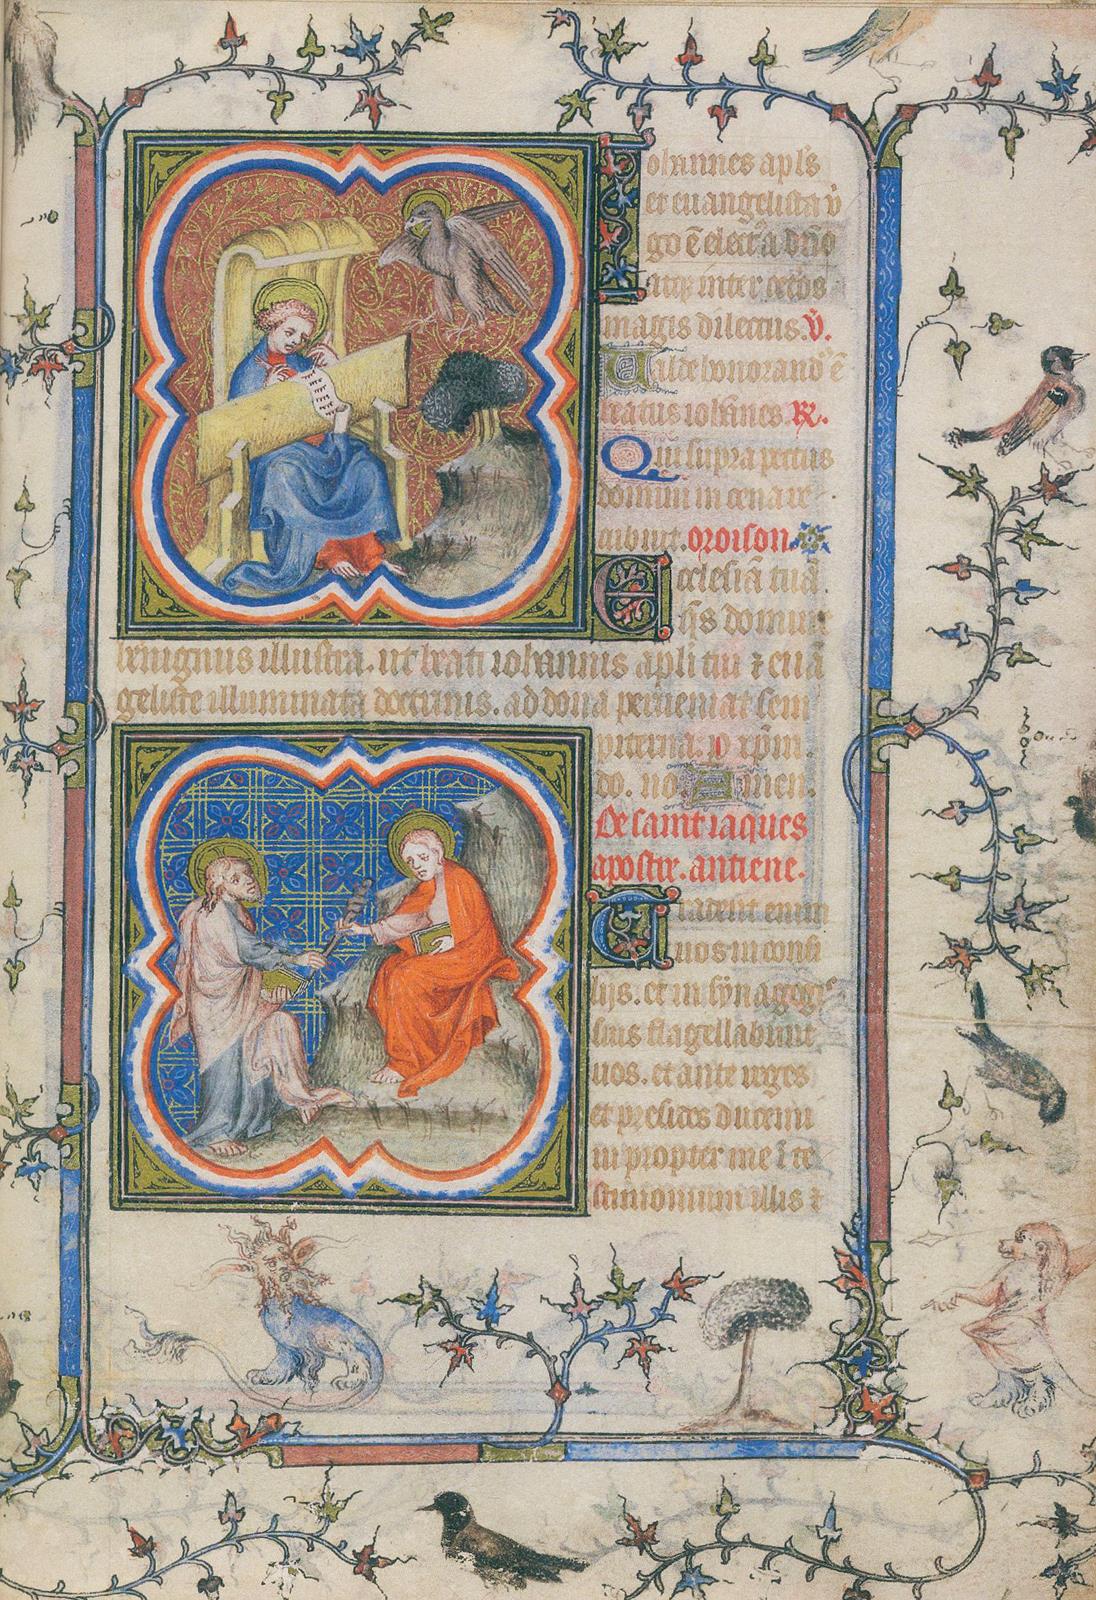 Iohannes apl̄s
et euangelista v̄
go ē elect᷒ a dn̄o
atq; inter cet̄os
magis dilectus. v̄.
Ualde honorand᷒ ē
beatus ioh̄nes. R̄.
Qui supra pectus
domini in cena re
cubuit. oroison
Ecclesiā tuā
q̄s domine
benignus illustra. ut beati iohannis apl̄i tui ⁊ euā
geliste illuminata doctrinis. ad dona perueniat sem
piterna. p xp̄m.
do. no. Amen.
De saint iaques
apostre. antiene.
Tradent enim
uos in consi
lijs. et in synagogis
suis flagellabunt
uos. et ante reges
et presides ducemi
ni propter me ī te
stimonium illis ⁊